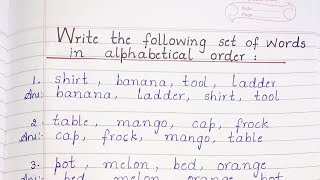 Write the following set of words
in alphabetical order :
1. shirt, banana, tool, ladder
Ans:- banana, ladder, shirt, tool
2. table, mango, cap, frock
Ans:- cap, frock, mango, table
3. pot, melon, bed, orange
Ans:- bed, melon, orange, pot